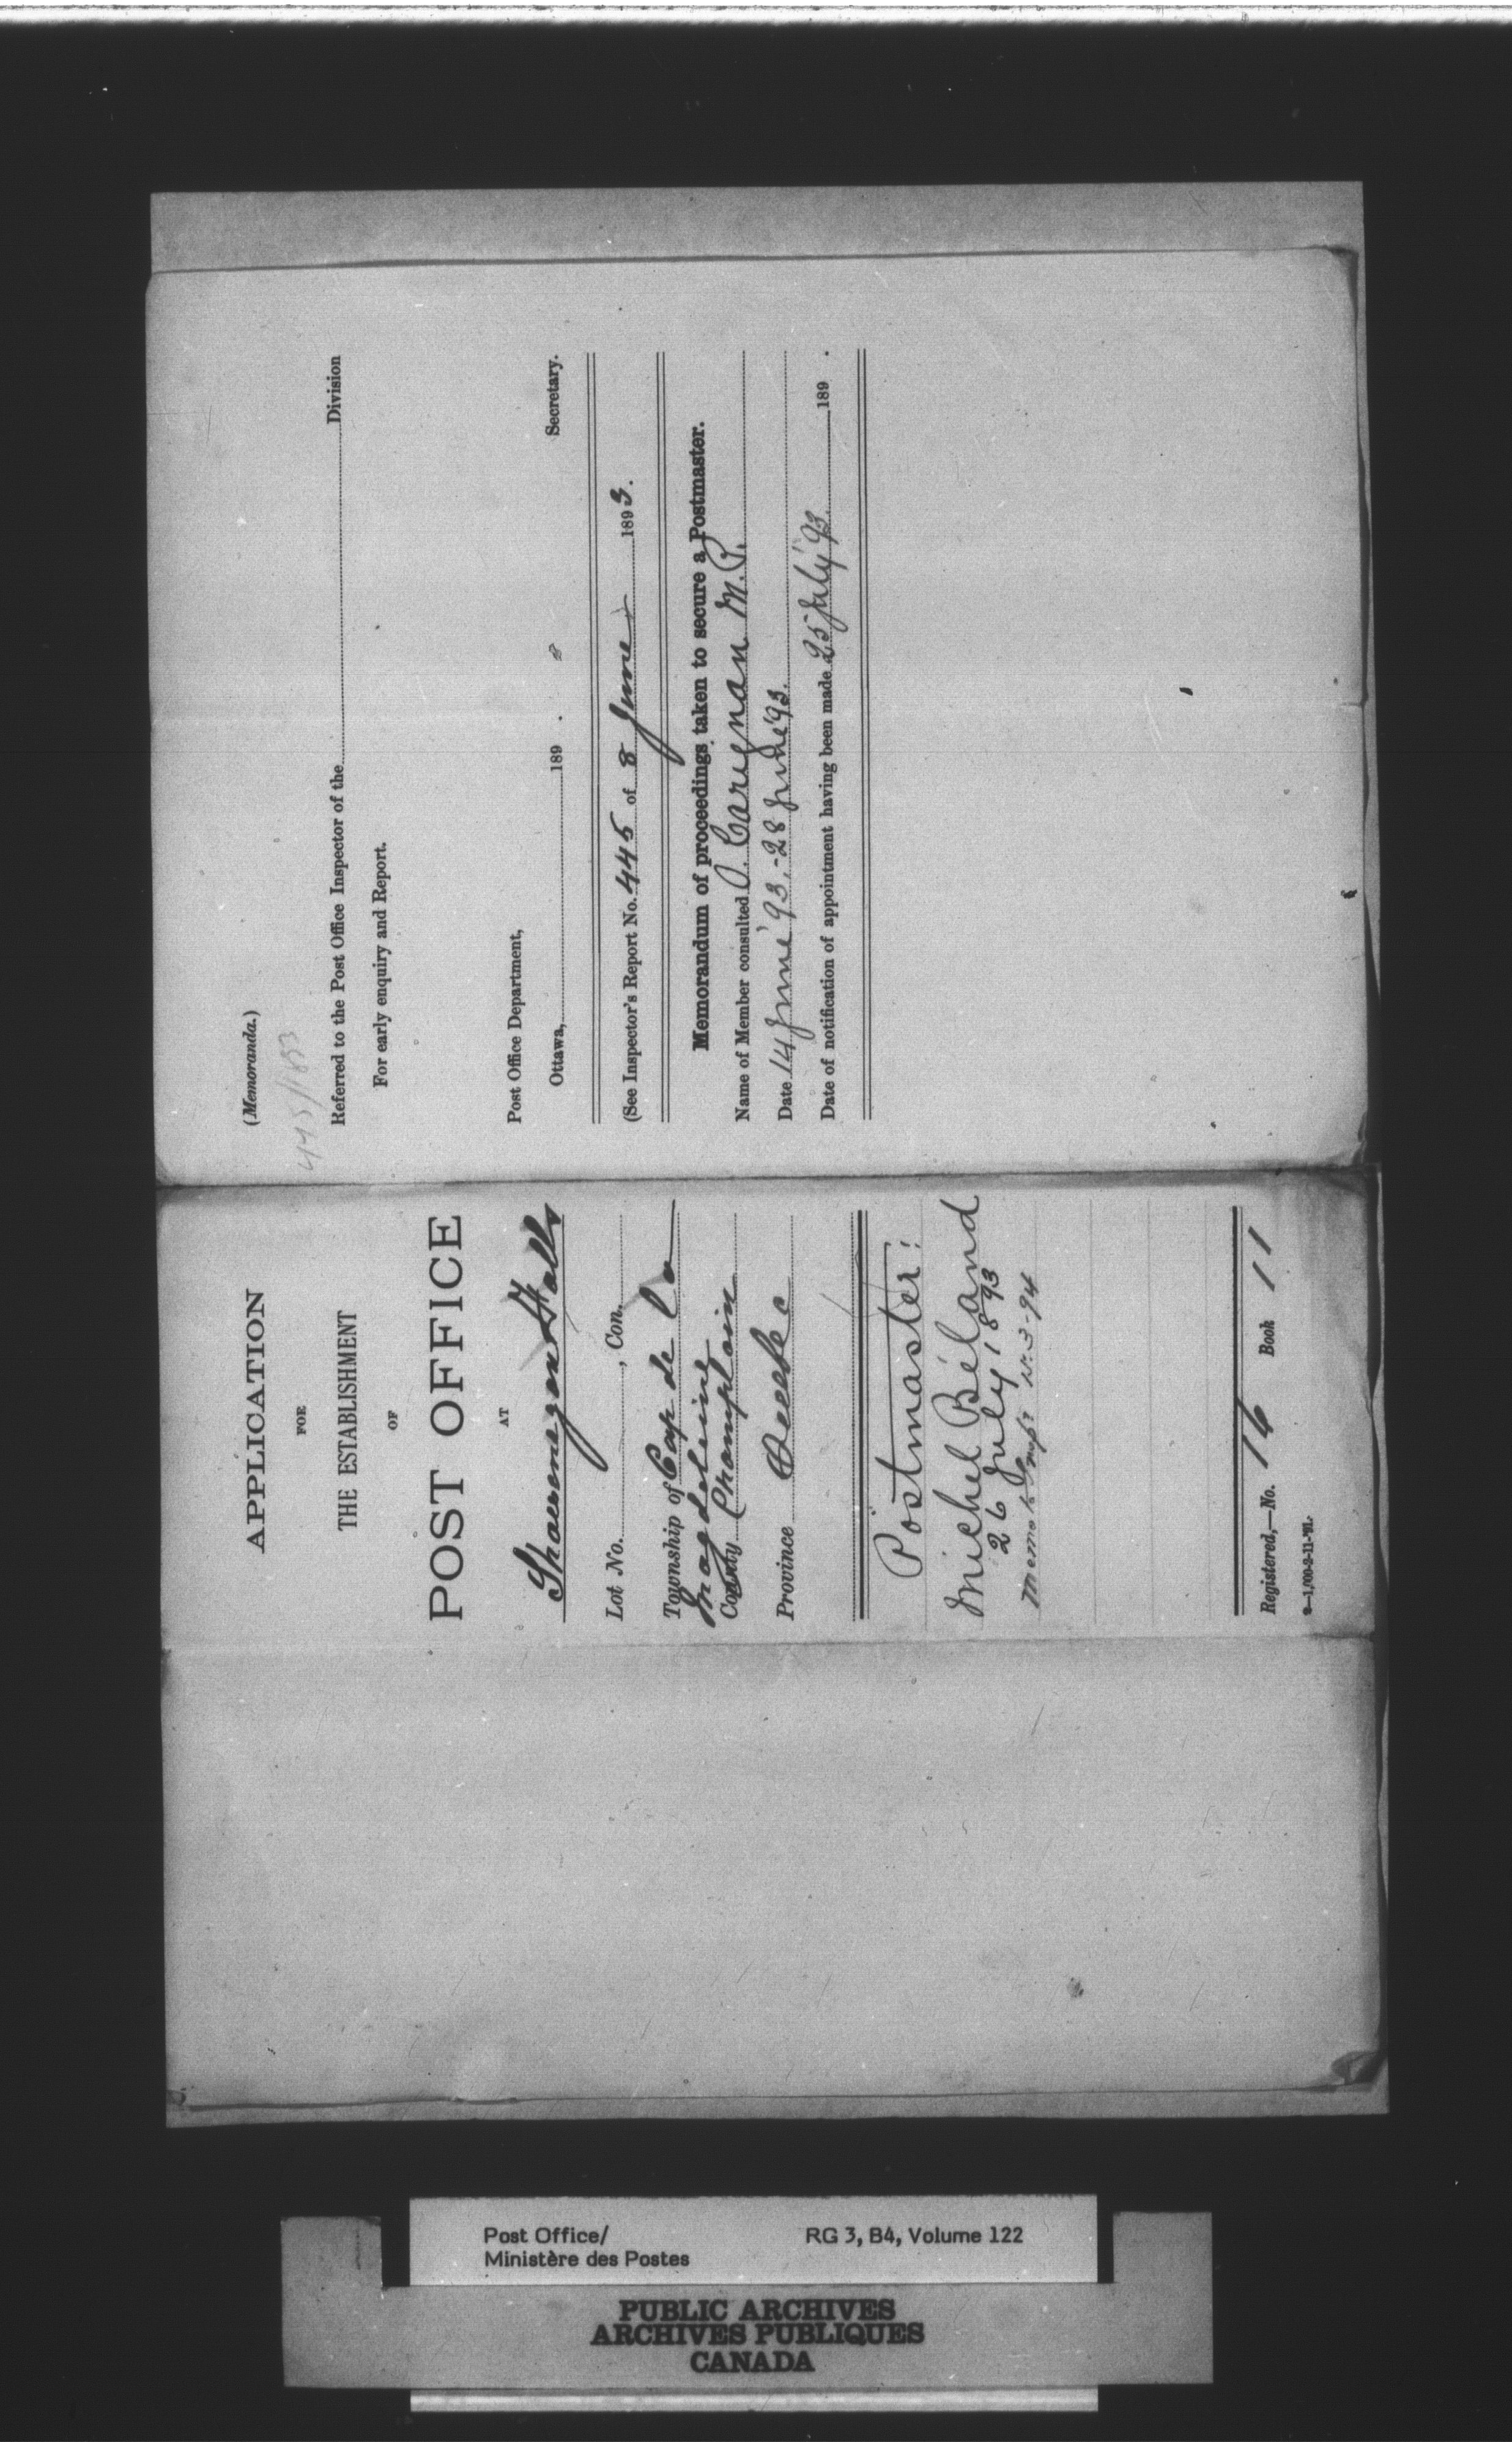 (Memoranda.)
445/1893
Referred to the Post Office Inspector of the Division
For early enquiry and Report.
Post Office Department,
Ottawa, 189 .
Secretary.
(See Inspector's Report No. 445 of 8 June 1893.
Memorandum of proceedings taken to secure a Postmaster.
Name of Member consulted O. Carignan M.P.
Date 14 June '93. - 28 June '93.
Date of notification of appointment having been made 25 July '93 189 .
APPLICATION
FOR
THE ESTABLISHMENT
OF
POST OFFICE
AT
Shawenegan Falls
Lot No. , Con.
Township of Cap de la
Magdeleine
County Champlain
Province Quebec
Postmaster:
Michel Béland
26 July 1893
Memo to
Registered,—No. 16 Book 11
2—1,000-2-11-'91.
Post Office/
Ministère des Postes
RG 3, B4, Volume 122
PUBLIC ARCHIVES
ARCHIVES PUBLIQUES
CANADA